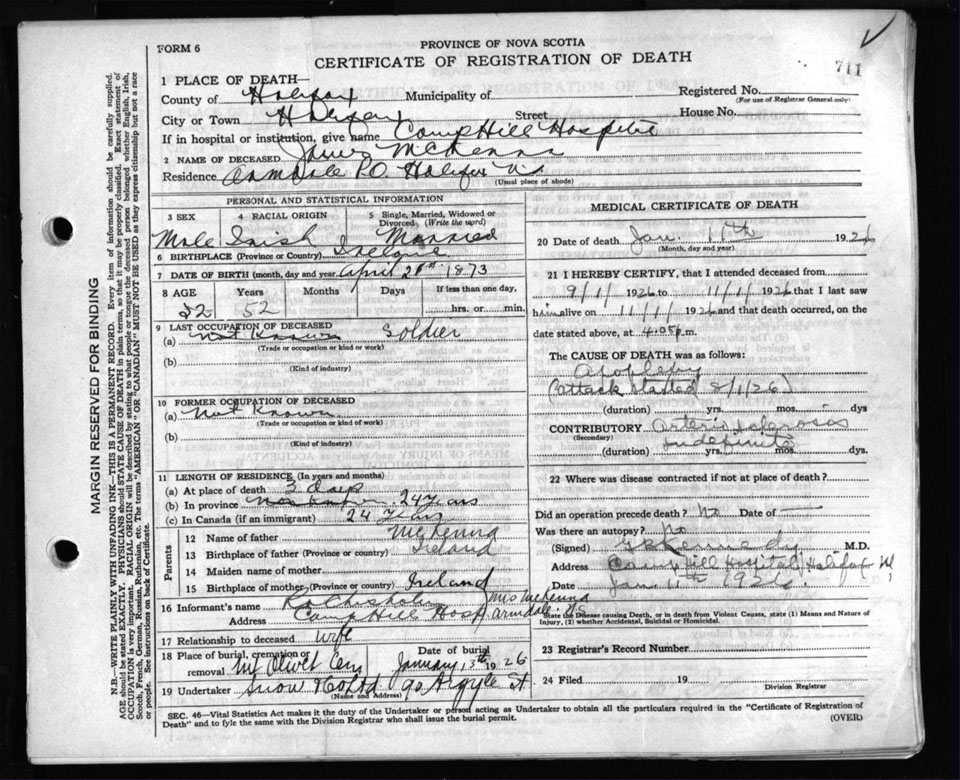 FORM 6
PROVINCE OF NOVA SCOTIA
CERTIFICATE OF REGISTRATION OF DEATH
711
1 PLACE OF DEATH—
County of Halifax Municipality of Registered No.
(For use of Registrar General only)
City or Town Halifax Street House No.
If in hospital or institution, give name Camp Hill Hospital
2 NAME OF DECEASED James McKenna
Residence Armdale P.O. Halifax N.S.
(Usual place of abode)
PERSONAL AND STATISTICAL INFORMATION
3 SEX 4 RACIAL ORIGIN 5 Single, Married, Widowed or Divorced (Write the word)
Male Irish Married
6 BIRTHPLACE (Province or Country) Ireland
7 DATE OF BIRTH (month, day and year) April 1873
8 AGE Years Months Days If less than one day,
52 52 hrs. or min.
9 LAST OCCUPATION OF DECEASED
(a) Not Known Soldier
(Trade or occupation or kind or work)
(b)
(Kind of industry)
10 FORMER OCCUPATION OF DECEASED
(a) Not Known
(Trade or occupation or kind of work)
(b)
(Kind of industry)
11 LENGTH OF RESIDENCE (In years and months)
(a) At place of death 3 days
(b) In province 24 Years
(c) In Canada (if an immigrant) 24 Years
Parents
12 Name of father McKenna
13 Birthplace of father (Province or country) Ireland
14 Maiden name of mother
15 Birthplace of mother (Province or country) Ireland
16 Informant's name Chisholm Mrs McKenna
Address Camp Hill Hosp Armdale N.S.
17 Relationship to deceased Wife
18 Place of burial, cremation or removal Mt Olivet Cem Date of burial January 13th 1926
19 Undertaker Snow & Co Ltd 90 Argyle St
(Name and Address)
MEDICAL CERTIFICATE OF DEATH
20 Date of death Jan. 11th 1926
(Month, day and year)
21 I HEREBY CERTIFY, that I attended deceased from
9/1/1926 to 11/1/1926 that I last saw
him alive on 11/1/1926 and that death occurred, on the
date stated above, at 4.05 p.m.
The CAUSE OF DEATH was as follows:
Apoplexy
(attack started 8/1/26)
(duration) yrs. mos. - dys
CONTRIBUTORY Arterio Sclerosis
(Secondary) Indefinite
(duration) yrs. mos. dys.
22 Where was disease contracted if not at place of death?
Did an operation precede death? No Date of —
Was there an autopsy? No
(Signed) Kennedy M.D.
Address Camp Hill Hospital, Halifax N.S.
Date Jan 11th 1926
State the Disease causing Death, or in death from Violent Causes, state (1) Means and Nature of
Injury, (2) whether Accidental, Suicidal or Homicidal.
23 Registrar's Record Number
24 Filed 19
Division Registrar
SEC. 46—Vital Statistics Act makes it the duty of the Undertaker or person acting as Undertaker to obtain all the particulars required in the "Certificate of Registration of
Death" and to fyle the same with the Division Registrar who shall issue the burial permit. (OVER)
MARGIN RESERVED FOR BINDING
N.B.—WRITE PLAINLY WITH UNFADING INK—THIS IS A PERMANENT RECORD. Every item of information should be carefully supplied.
AGE should be stated EXACTLY. PHYSICIANS should STATE CAUSE OF DEATH in plain terms, so that it may be properly classified. Exact statement of
OCCUPATION is very important. RACIAL ORIGIN will be described by stating to what people or tongue the deceased person belonged whether English, Irish,
Scotch, French, German, Russian, Ruthenian, etc. The terms "AMERICAN" OR "CANADIAN" MUST NOT BE USED as they express citizenship but not a race
or people. See instructions on back of Certificate.